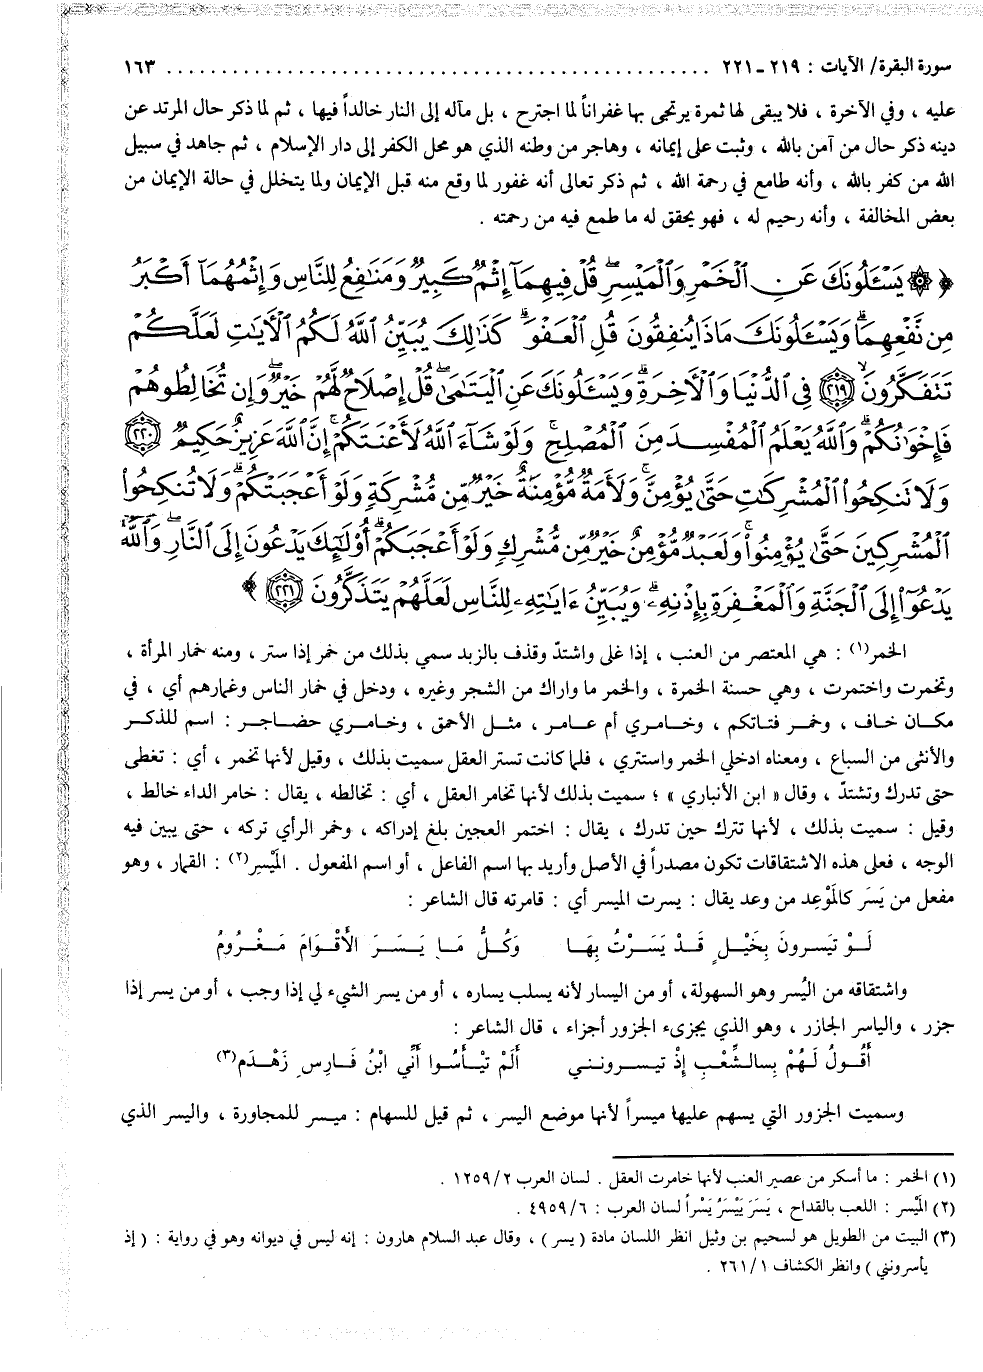 سورة البقرة/ الآيات : ٢١٩ ـ ٢٢١ ................................................ ١٦٣
عليه ، وفي الآخرة ، فلا يبقى لها ثمرة يرتجى بها غفراناً لما اجترح ، بل مآله إلى النار خالداً فيها ، ثم لما ذكر حال المرتد عن
دينه ذكر حال من آمن بالله ، وثبت على إيمانه ، وهاجر من وطنه الذي هو محل الكفر إلى دار الإسلام ، ثم جاهد في سبيل
الله من كفر بالله ، وأنه طامع في رحمة الله ، ثم ذكر تعالى أنه غفور لما وقع منه قبل الإيمان ولما يتخلل في حالة الإيمان من
بعض المخالفة ، وأنه رحيم له ، فهو يحقق له ما طمع فيه من رحمته .
﴿ ۞ يَسْـَٔلُونَكَ عَنِ ٱلْخَمْرِ وَٱلْمَيْسِرِۖ قُلْ فِيهِمَآ إِثْمٌ كَبِيرٌ وَمَنَٰفِعُ لِلنَّاسِ وَإِثْمُهُمَآ أَكْبَرُ
مِن نَّفْعِهِمَاۗ وَيَسْـَٔلُونَكَ مَاذَا يُنفِقُونَ قُلِ ٱلْعَفْوَۗ كَذَٰلِكَ يُبَيِّنُ ٱللَّهُ لَكُمُ ٱلْأَيَٰتِ لَعَلَّكُمْ
تَتَفَكَّرُونَ ٢١٩ فِى ٱلدُّنْيَا وَٱلْأَخِرَةِۗ وَيَسْـَٔلُونَكَ عَنِ ٱلْيَتَٰمَىٰۖ قُلْ إِصْلَاحٌ لَّهُمْ خَيْرٌۖ وَإِن تُخَالِطُوهُمْ
فَإِخْوَٰنُكُمْۚ وَٱللَّهُ يَعْلَمُ ٱلْمُفْسِدَ مِنَ ٱلْمُصْلِحِۚ وَلَوْ شَآءَ ٱللَّهُ لَأَعْنَتَكُمْۚ إِنَّ ٱللَّهَ عَزِيزٌ حَكِيمٌ ٢٢٠
وَلَا تَنكِحُوا۟ ٱلْمُشْرِكَٰتِ حَتَّىٰ يُؤْمِنَّۚ وَلَأَمَةٌ مُّؤْمِنَةٌ خَيْرٌ مِّن مُّشْرِكَةٍ وَلَوْ أَعْجَبَتْكُمْۗ وَلَا تُنكِحُوا۟
ٱلْمُشْرِكِينَ حَتَّىٰ يُؤْمِنُوا۟ۚ وَلَعَبْدٌ مُّؤْمِنٌ خَيْرٌ مِّن مُّشْرِكٍ وَلَوْ أَعْجَبَكُمْۗ أُو۟لَٰٓئِكَ يَدْعُونَ إِلَى ٱلنَّارِۖ وَٱللَّهُ
يَدْعُوٓا۟ إِلَى ٱلْجَنَّةِ وَٱلْمَغْفِرَةِ بِإِذْنِهِۦۖ وَيُبَيِّنُ ءَايَٰتِهِۦ لِلنَّاسِ لَعَلَّهُمْ يَتَذَكَّرُونَ ٢٢١ ﴾
الخمر(١) : هي المعتصر من العنب ، إذا غلى واشتدّ وقذف بالزبد سمي بذلك من خمر إذا ستر ، ومنه خمار المرأة ،
وتخمرت واختمرت ، وهي حسنة الخمرة ، والخمر ما واراك من الشجر وغيره ، ودخل في خمار الناس وغمارهم أي ، في
مكان خاف ، وخمر فتاتكم ، وخامري أم عامر ، مثل الأحمق ، وخامري حضاجر : اسم للذكر
والأنثى من السباع ، ومعناه ادخلي الخمر واستتري ، فلما كانت تستر العقل سميت بذلك ، وقيل لأنها تخمر ، أي : تغطى
حتى تدرك وتشتدّ ، وقال « ابن الأنباري » ؛ سميت بذلك لأنها تخامر العقل ، أي : تخالطه ، يقال : خامر الداء خالط ،
وقيل : سميت بذلك ، لأنها تترك حين تدرك ، يقال : اختمر العجين بلغ إدراكه ، وخمر الرأي تركه ، حتى يبين فيه
الوجه ، فعلى هذه الاشتقاقات تكون مصدراً في الأصل وأريد بها اسم الفاعل ، أو اسم المفعول . المَيْسِر(٢) : القمار ، وهو
مفعل من يَسَر كالمَوْعِد من وعد يقال : يسرت الميسر أي : قامرته قال الشاعر :
لَوْ تَيسرونَ بِخَيْلٍ قَدْ يَسَرْتُ بِهَا وَكُلُّ مَا يَسَرَ الأَقْوَامَ مَغْرُومُ
واشتقاقه من اليُسر وهو السهولة، أو من اليسار لأنه يسلب يساره ، أو من يسر الشيء لي إذا وجب ، أو من يسر إذا
جزر ، والياسر الجازر ، وهو الذي يجزىء الجزور أجزاء ، قال الشاعر :
أَقُولُ لَهُمْ بِالشَّعْبِ إِذْ تيسرونني أَلَمْ تَيْأَسُوا أَنِّي ابْنُ فَارِسِ زَهْدَمِ(٣)
وسميت الجزور التي يسهم عليها ميسراً لأنها موضع اليسر ، ثم قيل للسهام : ميسر للمجاورة ، واليسر الذي
(١) الخمر : ما أسكر من عصير العنب لأنها خامرت العقل . لسان العرب ١٢٥٩/٢ .
(٢) المَيْسر : اللعب بالقداح ، يَسَرَ يَيْسَرُ يَسْراً لسان العرب : ٤٩٥٩/٦ .
(٣) البيت من الطويل هو لسحيم بن وثيل انظر اللسان مادة ( يسر ) ، وقال عبد السلام هارون : إنه ليس في ديوانه وهو في رواية : ( إذ
يأسرونني ) وانظر الكشاف ٢٦١/١ .